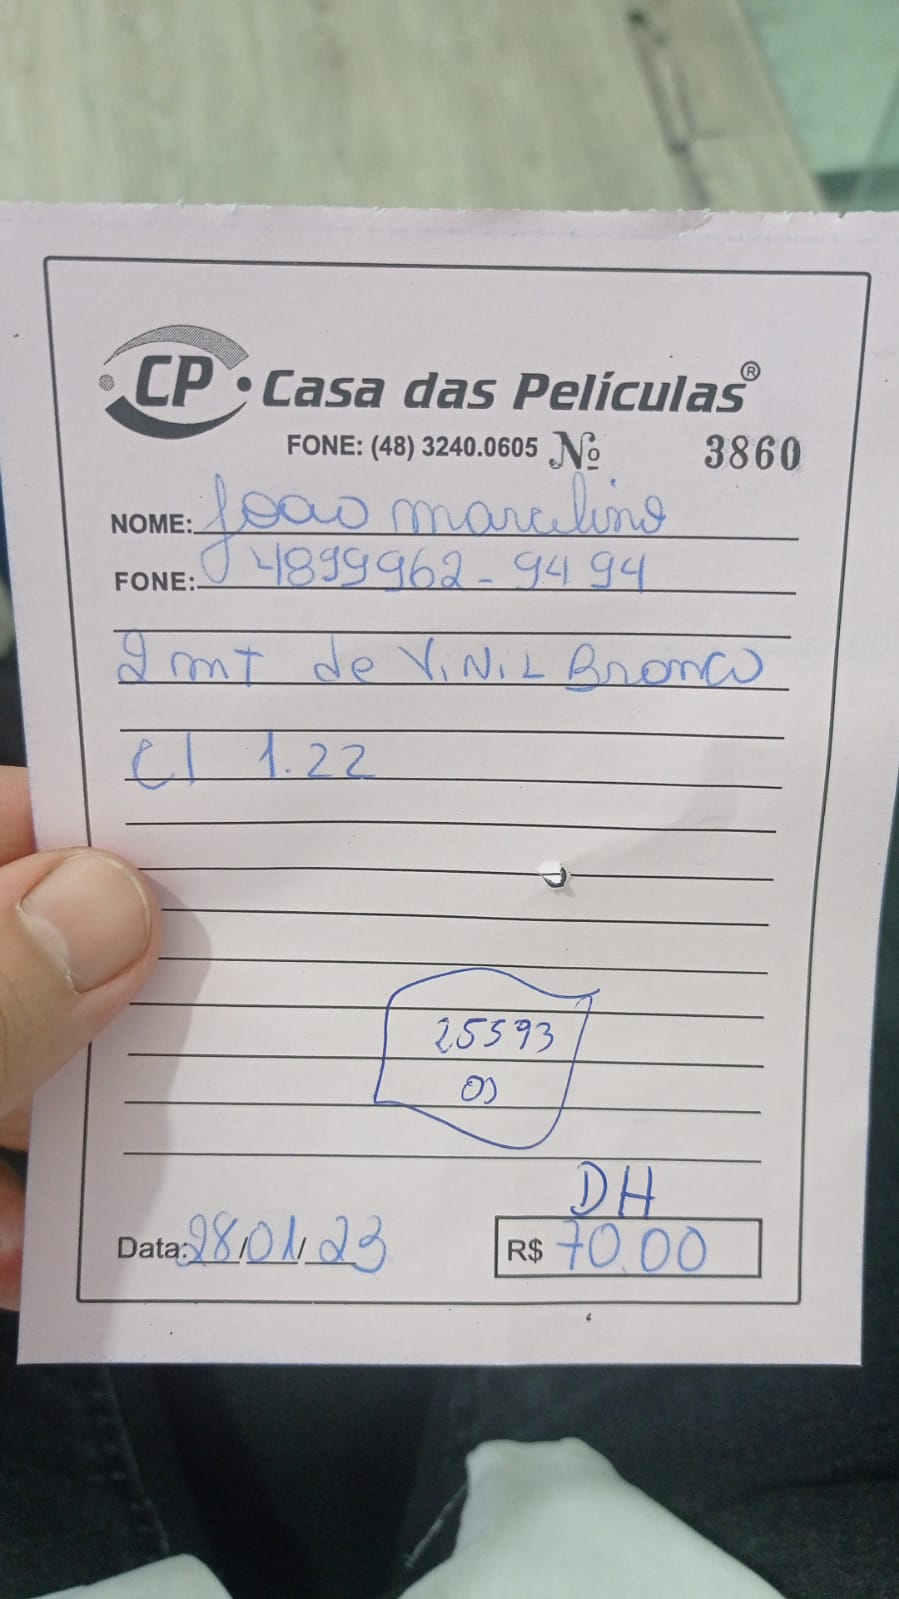 CP • Casa das Películas®
FONE: (48) 3240.0605 Nº 3860
NOME: Joao marcelino
FONE: 4899962-9494
2 mt de ViNiL Branco
C/ 1.22
25593
DH
Data: 28/01/23 R$ 70.00